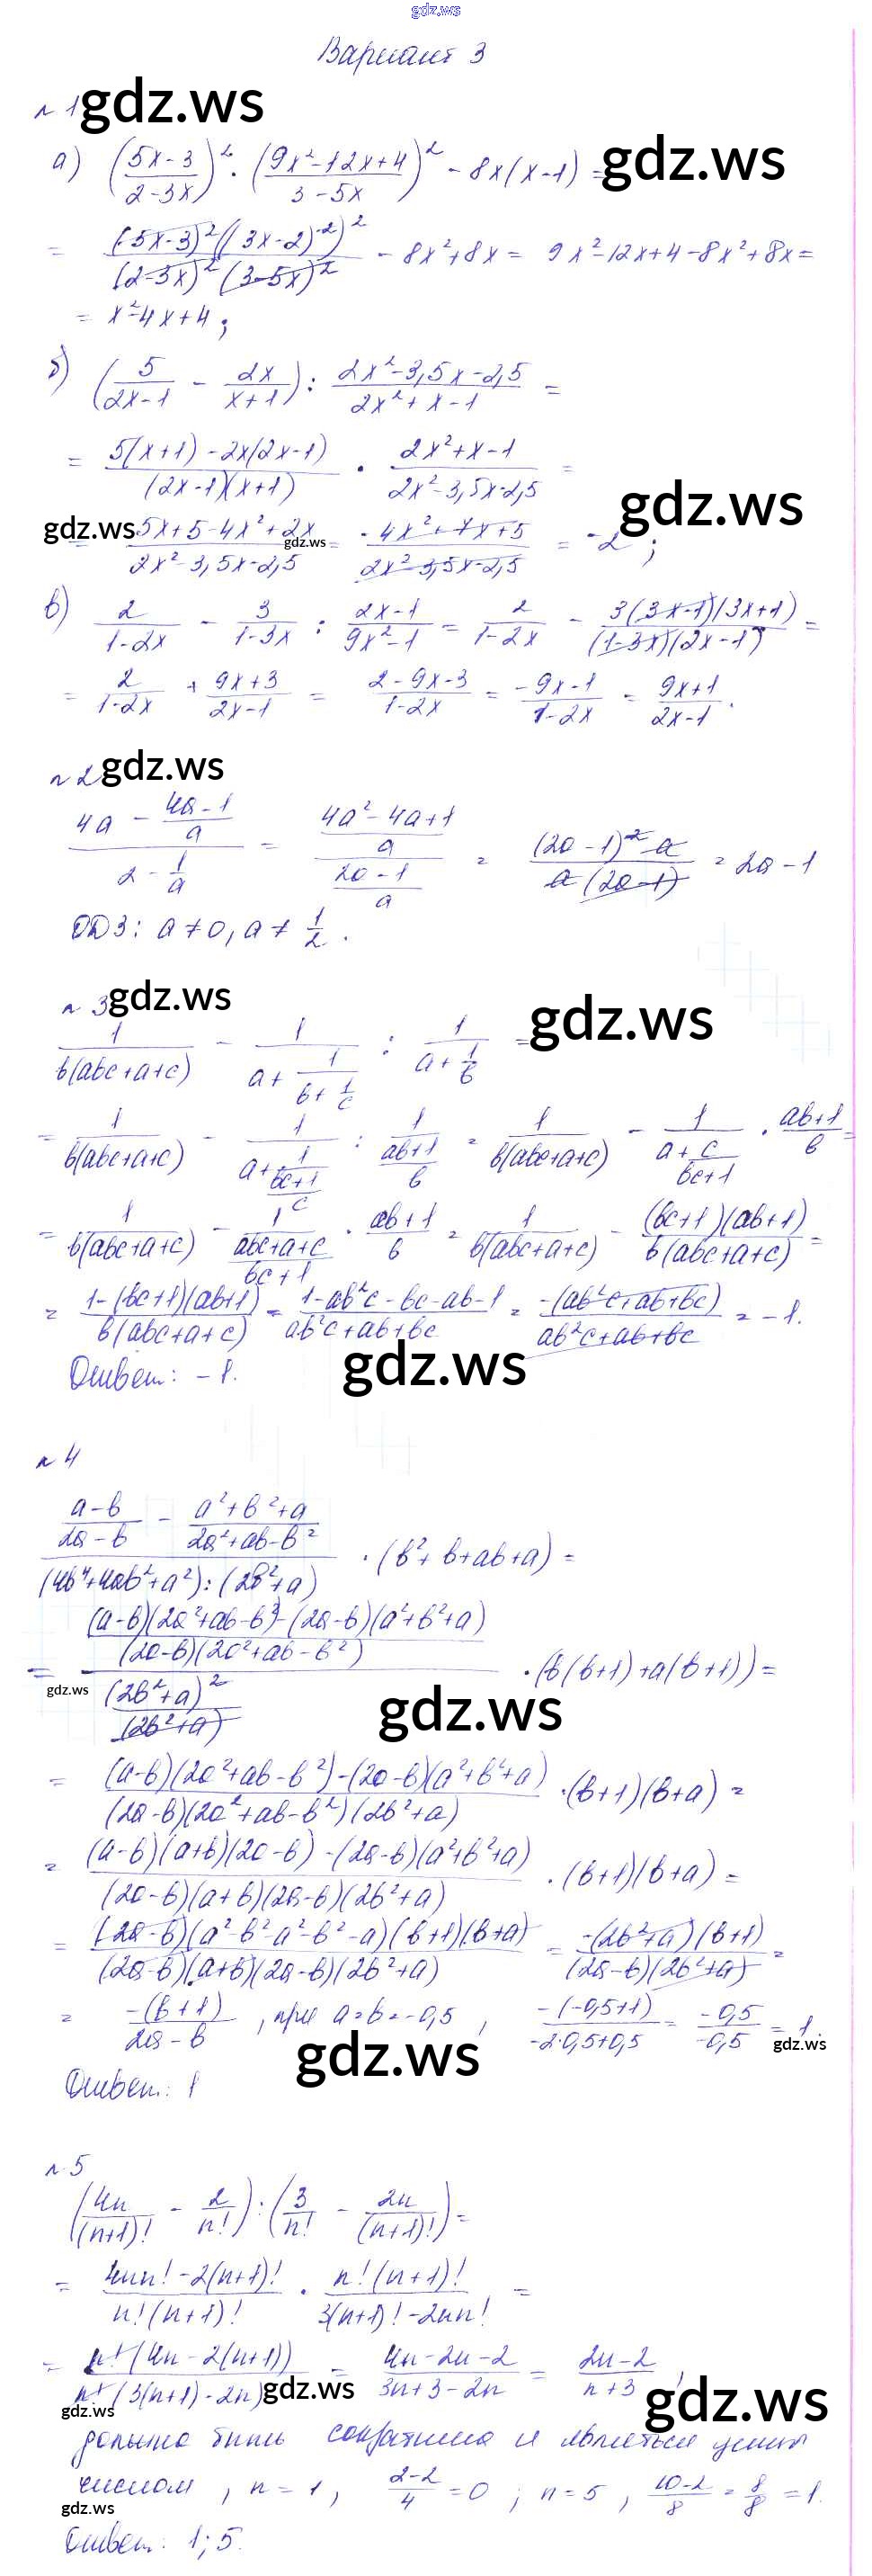 gdz.ws
Вариант 3
n 1 gdz.ws
а) ((5x-3)/(2-3x))² · ((9x²-12x+4)/(3-5x))² - 8x(x-1) = gdz.ws
= ((5x-3)²((3x-2)²)²)/((2-3x)²(3-5x)²) - 8x²+8x = 9x²-12x+4-8x²+8x =
= x²-4x+4;
б) (5/(2x-1) - 2x/(x+1)) : (2x²-3,5x-2,5)/(2x²+x-1) =
= (5(x+1)-2x(2x-1))/((2x-1)(x+1)) · (2x²+x-1)/(2x²-3,5x-2,5) =
gdz.ws
gdz.ws = (5x+5-4x²+2x)/(2x²-3,5x-2,5) gdz.ws = (-4x²+7x+5)/(2x²-3,5x-2,5) = -2;
в) 2/(1-2x) - 3/(1-3x) : (2x-1)/(9x²-1) = 2/(1-2x) - (3(3x-1)(3x+1))/((1-3x)(2x-1)) =
= 2/(1-2x) + (9x+3)/(2x-1) = (2-9x-3)/(1-2x) = (-9x-1)/(1-2x) = (9x+1)/(2x-1).
n 2 gdz.ws
(4a - (4a-1)/a)/(2 - 1/a) = ((4a²-4a+1)/a)/((2a-1)/a) = ((2a-1)² a)/(a(2a-1)) = 2a-1
ОДЗ: a≠0, a≠ 1/2.
n 3 gdz.ws
gdz.ws
1/(b(abc+a+c)) - 1/(a+1/(b+1/c)) : 1/(a+1/b) =
= 1/(b(abc+a+c)) - 1/(a+1/((bc+1)/c)) : 1/((ab+1)/b) = 1/(b(abc+a+c)) - 1/(a+c/(bc+1)) · (ab+1)/b =
= 1/(b(abc+a+c)) - 1/((abc+a+c)/(bc+1)) · (ab+1)/b = 1/(b(abc+a+c)) - ((bc+1)(ab+1))/(b(abc+a+c)) =
= (1-(bc+1)(ab+1))/(b(abc+a+c)) = (1-ab²c-bc-ab-1)/(ab²c+ab+bc) = (-(ab²c+ab+bc))/(ab²c+ab+bc) = -1.
Ответ: -1. gdz.ws
n 4
((a-b)/(2a-b) - (a²+b²+a)/(2a²+ab-b²))/((4b⁴+4ab²+a²):(2b²+a)) · (b²+b+ab+a) =
= (((a-b)(2a²+ab-b²)-(2a-b)(a²+b²+a))/((2a-b)(2a²+ab-b²)))/((2b²+a)²/(2b²+a)) · (b(b+1)+a(b+1)) =
gdz.ws gdz.ws
= ((a-b)(2a²+ab-b²)-(2a-b)(a²+b²+a))/((2a-b)(2a²+ab-b²)(2b²+a)) · (b+1)(b+a) =
= ((a-b)(a+b)(2a-b)-(2a-b)(a²+b²+a))/((2a-b)(a+b)(2a-b)(2b²+a)) · (b+1)(b+a) =
= ((2a-b)(a²-b²-a²-b²-a)(b+1)(b+a))/((2a-b)(a+b)(2a-b)(2b²+a)) = (-(2b²+a)(b+1))/((2a-b)(2b²+a)) =
= (-(b+1))/(2a-b), при a=b=-0,5, (-(-0,5+1))/(-2·0,5+0,5) = (-0,5)/(-0,5) = 1.
gdz.ws gdz.ws
Ответ: 1
n 5
(4n/(n+1)! - 2/n!) : (3/n! - 2n/(n+1)!) =
= (4nn!-2(n+1)!)/(n!(n+1)!) · (n!(n+1)!)/(3(n+1)!-2nn!) =
= (n!(4n-2(n+1)))/(n!(3(n+1)-2n)) gdz.ws = (4n-2n-2)/(3n+3-2n) = (2n-2)/(n+3),
gdz.ws gdz.ws
и
числом, n=1, (2-2)/4 = 0; n=5, (10-2)/8 = 8/8 = 1.
gdz.ws
Ответ: 1; 5.